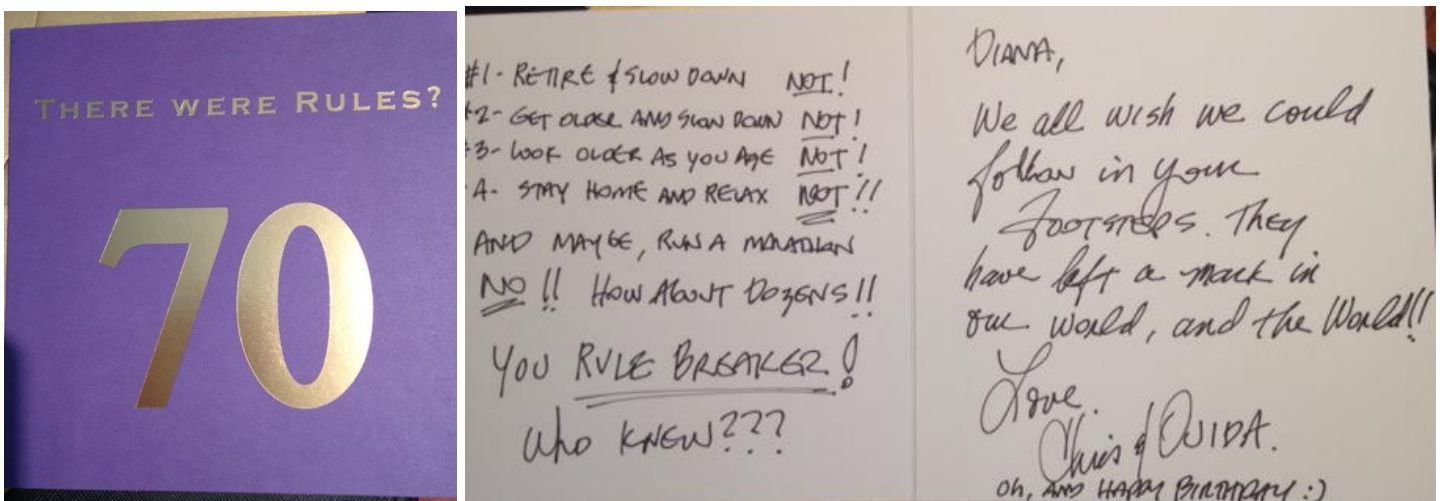 THERE WERE RULES?
70
#1- RETIRE & SLOW DOWN NOT!
#2- GET OLDER AND SLOW DOWN NOT!
#3- LOOK OLDER AS YOU AGE NOT!
4- STAY HOME AND RELAX NOT!!
AND MAYBE, RUN A MARATHON
NO!! HOW ABOUT DOZENS!!
YOU RULE BREAKER!
WHO KNEW???
DIANA,
We all wish we could
follow in your
FOOTSTEPS. THEY
have left a mark in
our world, and the World!!
Love.
Chris & OUIDA.
OH, AND HAPPY BIRTHDAY :)